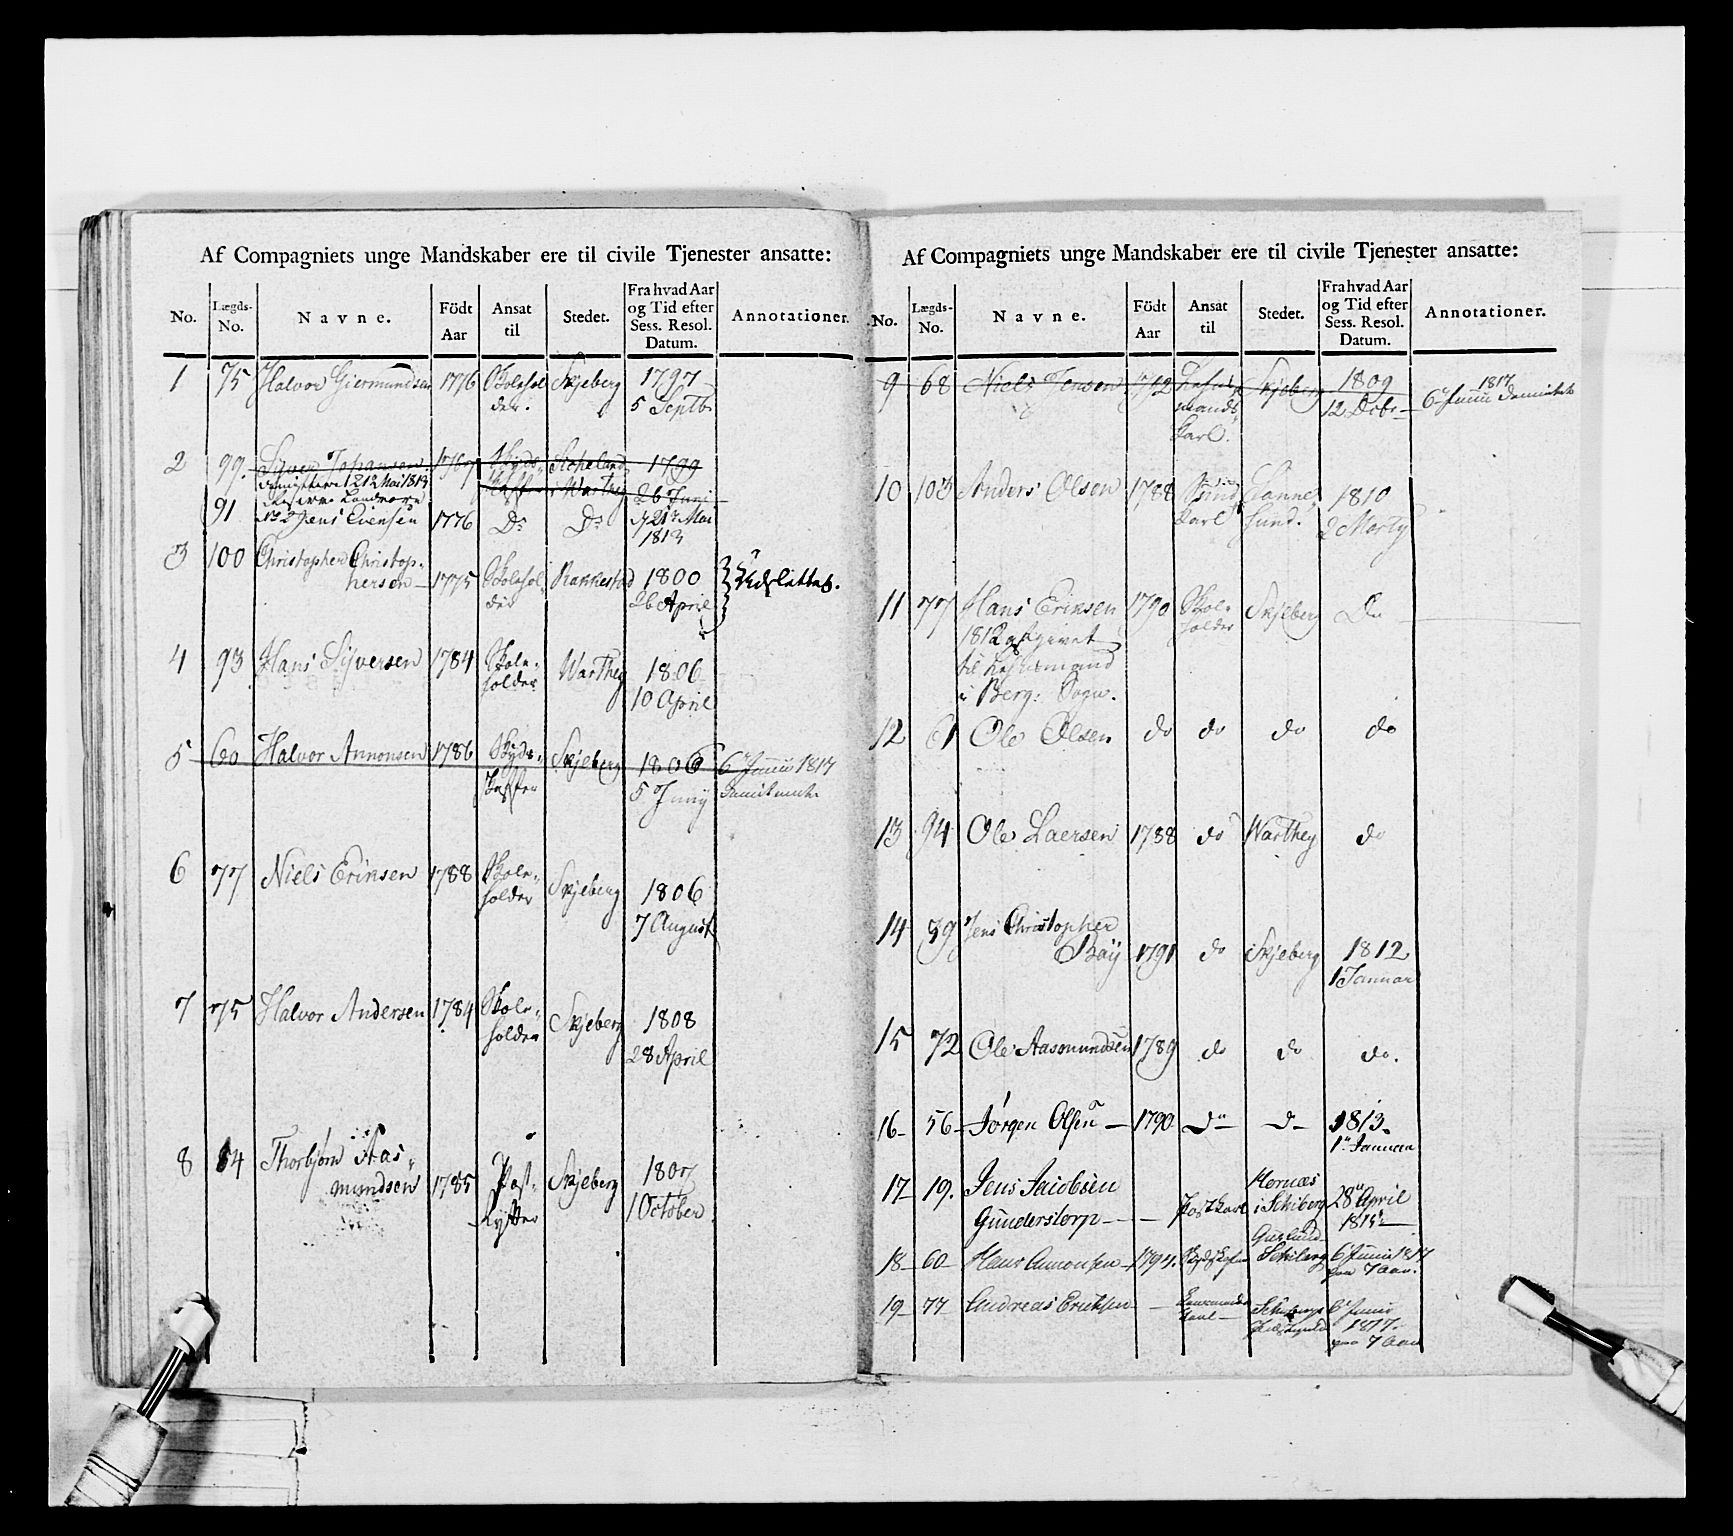 Af Compagniets unge Mandskaber ere til civile Tjenester ansatte:
No. Lægds-No. Navne. Födt Aar Ansat til Stedet. Fra hvad Aar og Tid efter Sess. Resol. Datum. Annotationer.
1 75 Halvor Giermundsen 1776 Skolehol Skjeberg 1797
der. 5 Septb.
2 99. Johansen 1767 Skyds 1799
Warthey 26 Juni
Reserve Landværn
91 No 2 Jens Evensen 1776 Do Do 21 Mai
1813
3 100 Christopher Christop-
hersen 1775 Skolehol Rakkestad 1800 Udslettes.
der 26 April
4 93 Hans Syversen 1784 Skole- Warthey 1806
holder 10 April
5 60 Halvor Amonsen 1786 Skyds- Skjeberg 1806 6 Junii 1817
Skaffer 5 Junij
6 77 Niels Eriksen 1788 Skole- Skjeberg 1806
holder 7 August
7 75 Halvor Andersen 1784 Skole- Skjeberg 1808
holder 28 April
8 84 Thorbjørn Aas-
mundsen 1785 Post- Skjeberg 1807
1 October
Af Compagniets unge Mandskaber ere til civile Tjenester ansatte:
No. Lægds-No. Navne. Födt Aar Ansat til Stedet. Fra hvad Aar og Tid efter Sess. Resol. Datum. Annotationer.
9 68 Niels Jensen Skjeberg 1809 1817
mands 12 Decbr 6 Junii
Karl.
10 103 Anders Olsen 1788 Sund Sanne 1810
Karl Sund.
11 77 Hans Eriksen 1790 Skole- Skjeberg Do
1812 afgivet holder
til Lensmand
i Berg: Sogn.
12 61 Ole Olsen do do do do
13 94 Ole Laersen 1788 do Warthey do
14 39 Jens Christopher
Bay 1791 do Skjeberg 1812
1 Januar
15 72 Ole Aasmundsen 1789 do do do.
16 56 Jørgen Olsen 1790 do 1813.
1 Januar
17 19. Jens Jacobsen Hornæs
Gunderstorp Postkarl i Schiberg 28 April
1815
18 60 Hans Amonsen 1794. Schiberg 6 Junii 1817
paa 7 Aar.
19 77 Andreas Eriksen 6 Junii
1817
paa 7 Aar